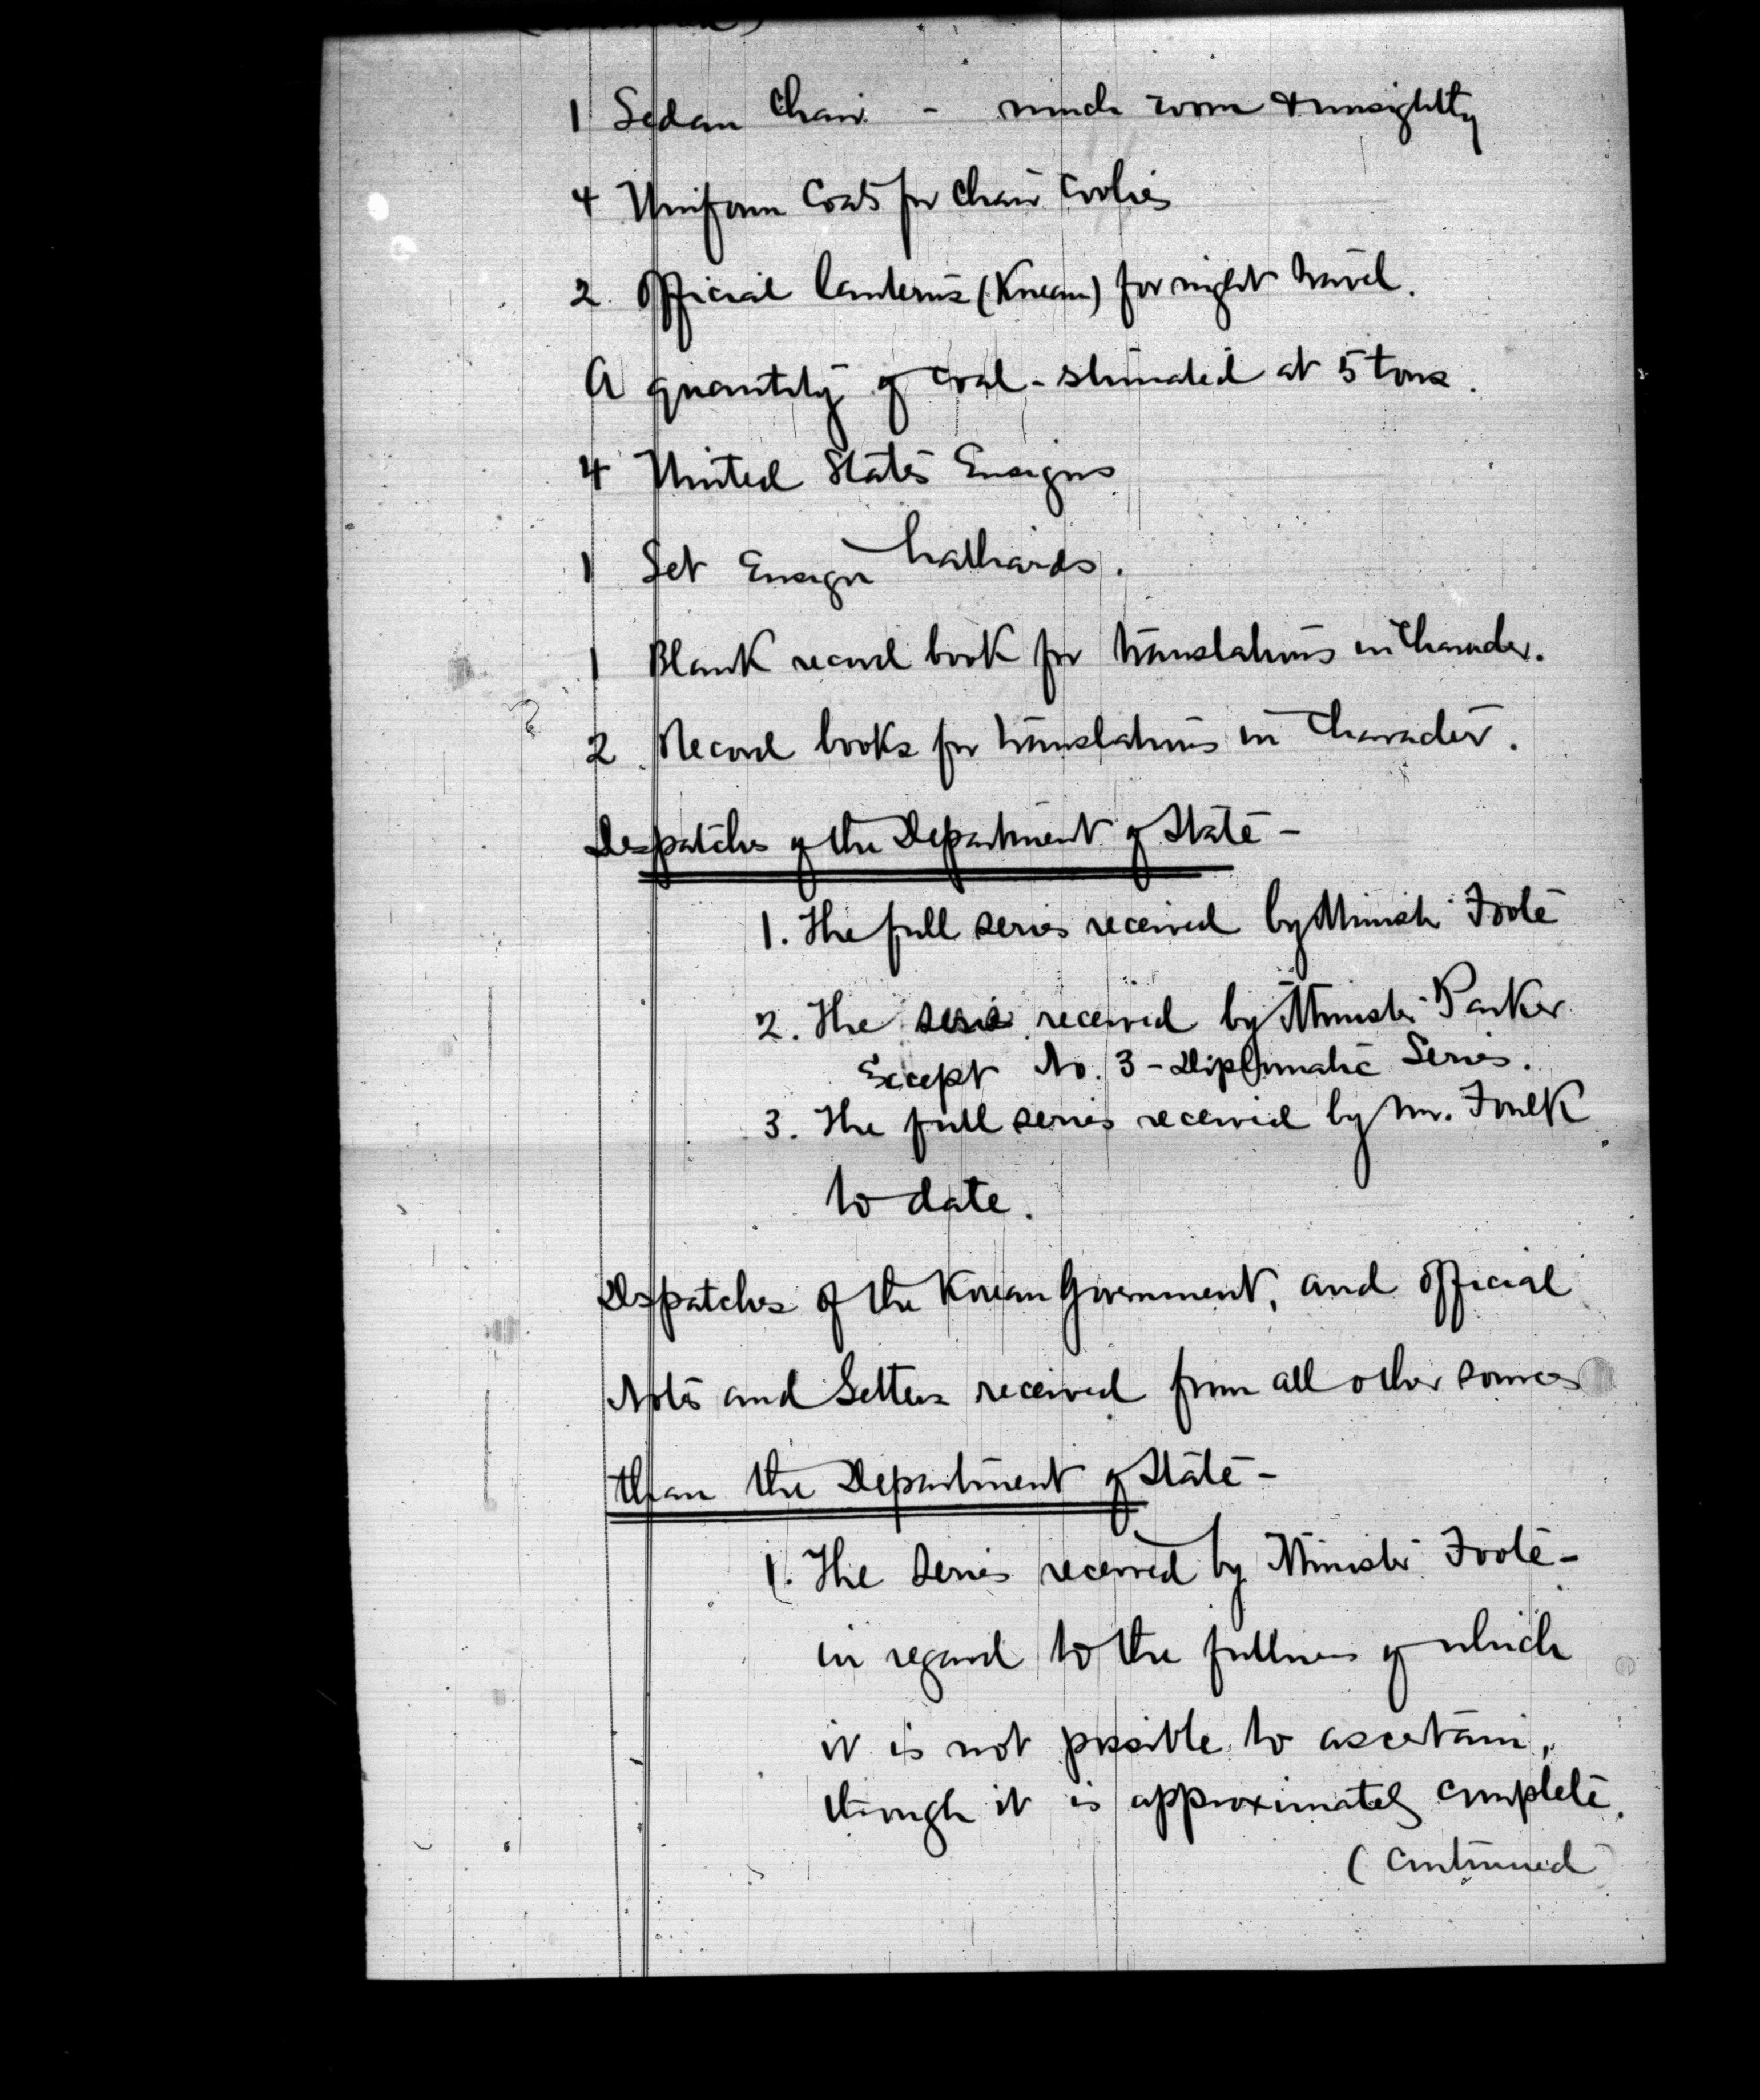 1 Sedan Chair - much worn & unsightly
4 Uniform Coats for Chair Coolies
2 Official lanterns (Korean) for night travel.
A quantity of coal - stimated at 5 tons.
4 United States Ensigns
1 Set Ensign halliards.
1 Blank record book for translations in Character.
2 Record books for translations in Character.
Despatches of the Department of State -
1. The full series received by Minister Foote
2. The series received by Minister Parker
Except No. 3 - Diplomatic Series.
3. The full series received by Mr. Foulk
to date.
Despatches of the Korean Government, and official
Notes and Letters received from all other sources
than the Department of State -
1. The series received by Minister Foote -
in regard to the fullness of which
it is not possible to ascertain,
though it is approximately complete.
(Continued)